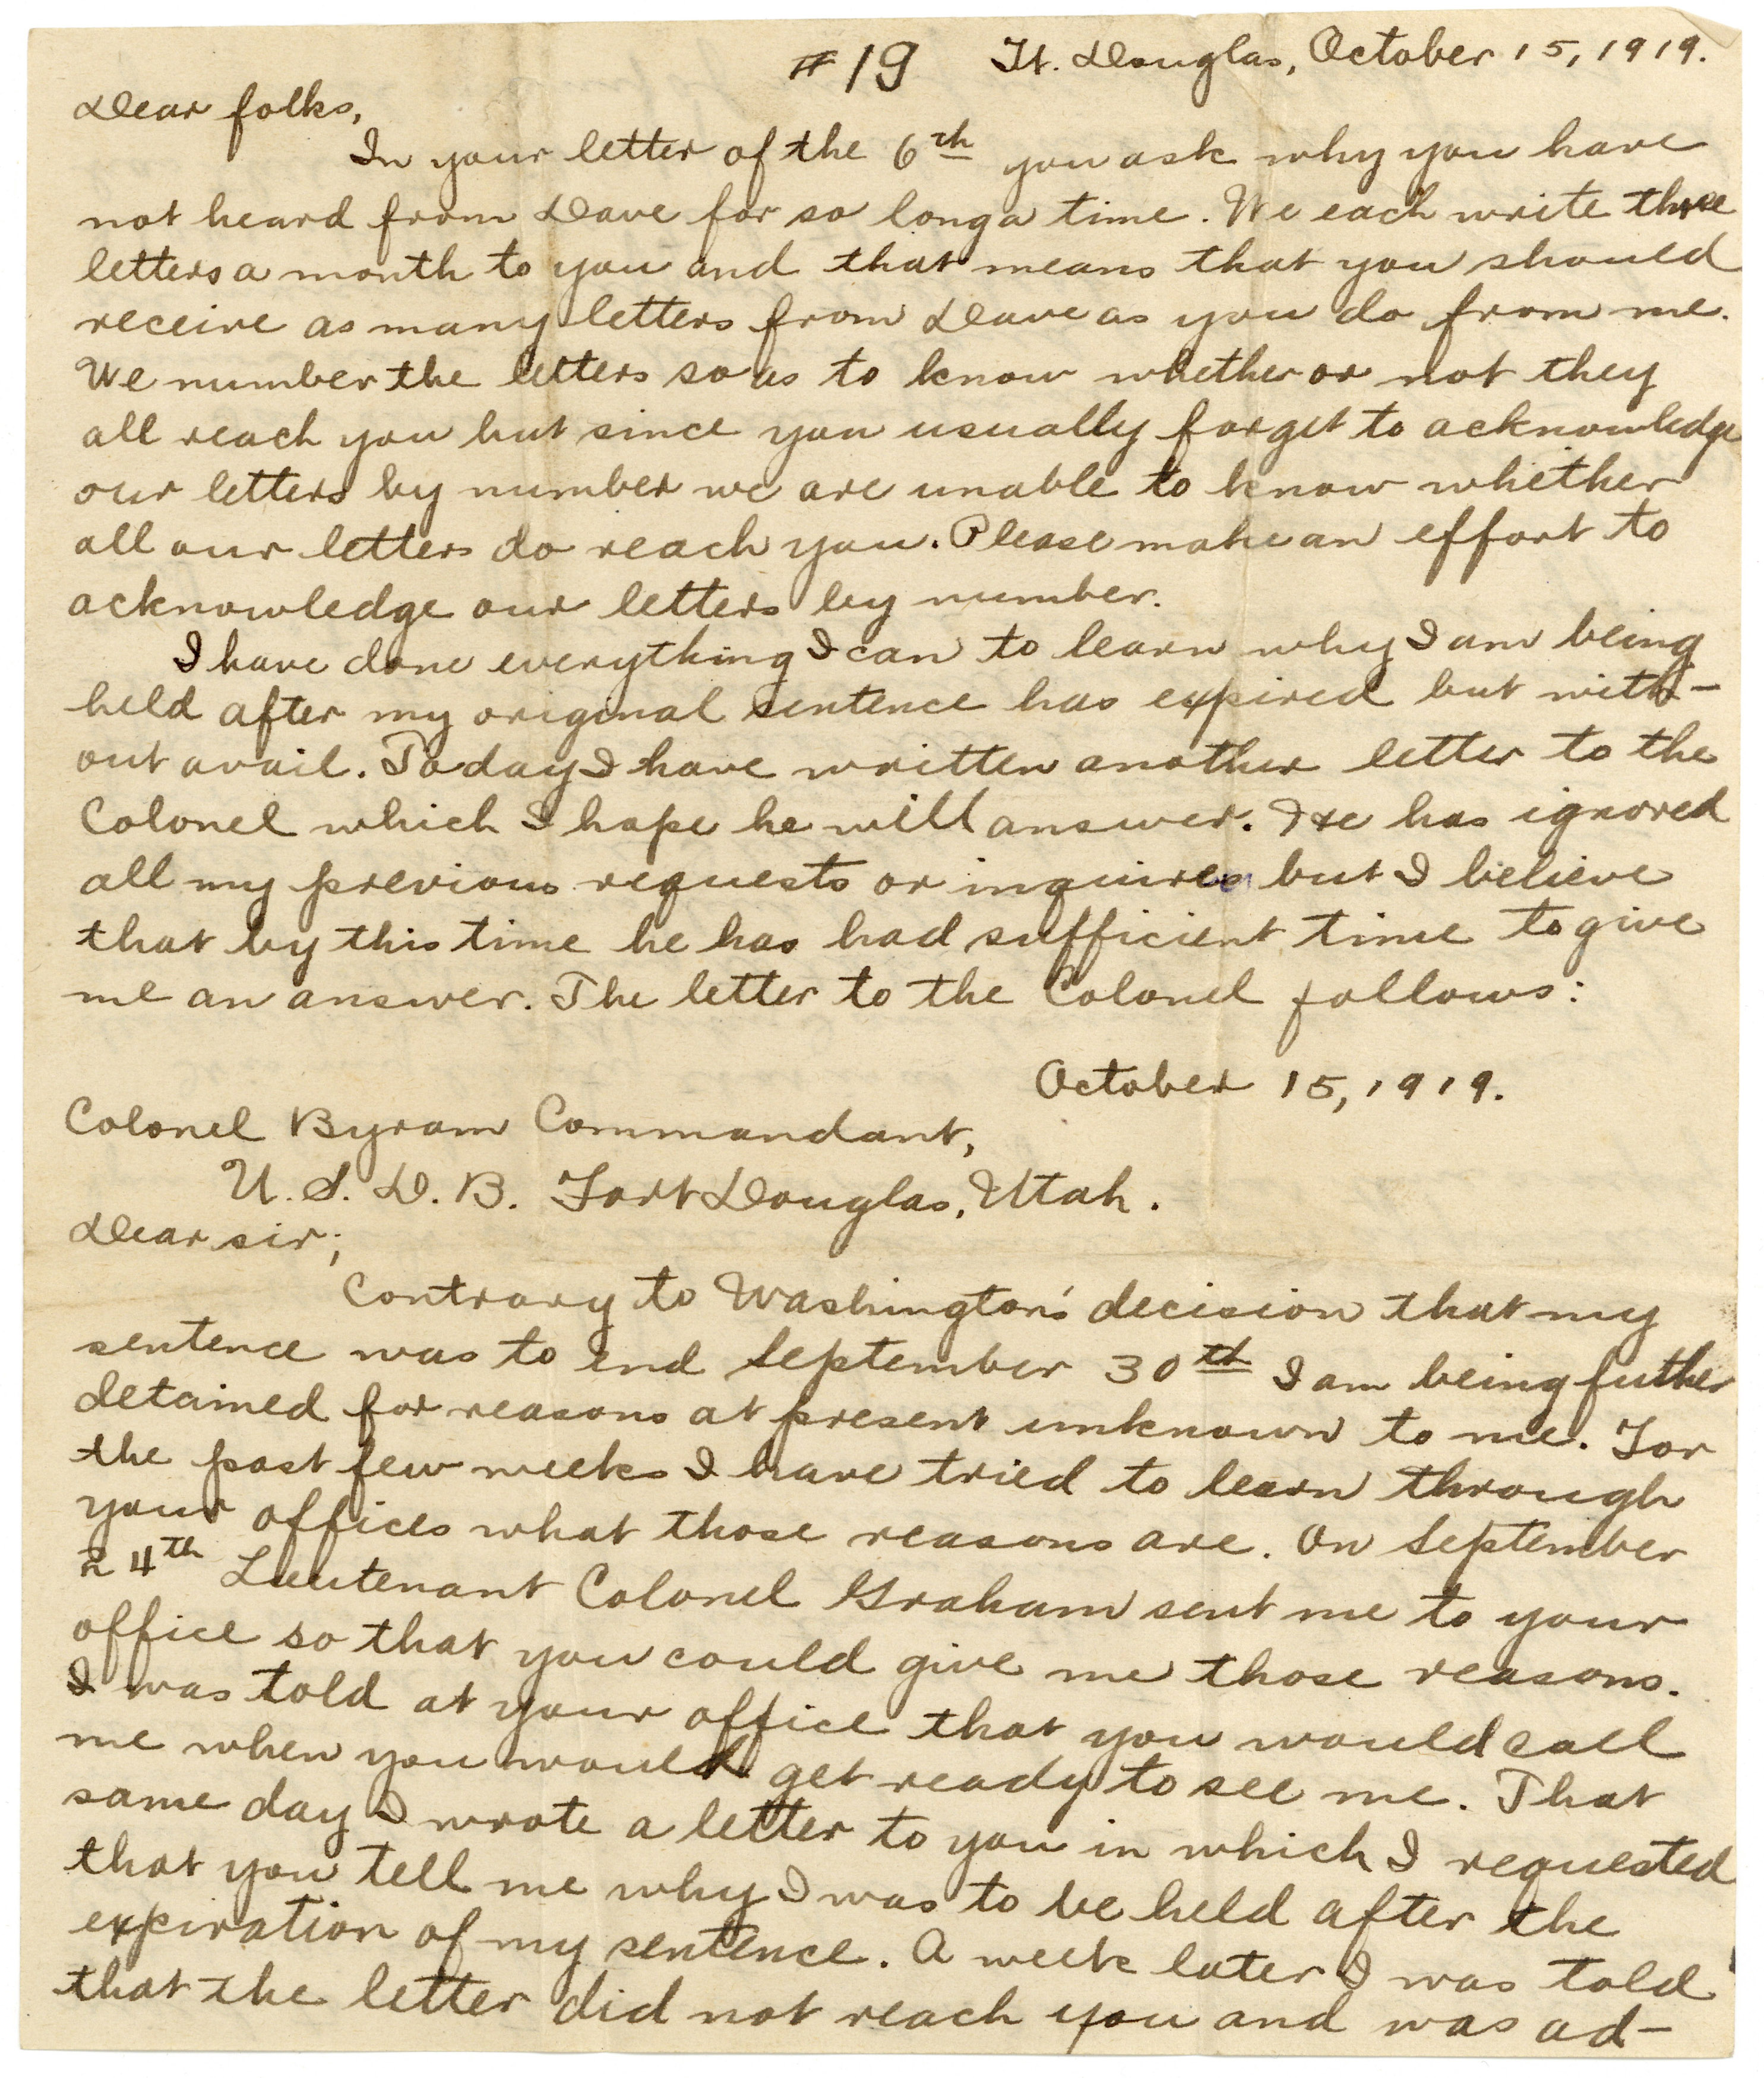 #19 Ft. Douglas, October 15, 1919.
Dear folks,
In your letter of the 6th you ask why you have
not heard from Dave for so long a time. We each write three
letters a month to you and that means that you should
receive as many letters from Dave as you do from me.
We number the letters so as to know whether or not they
all reach you but since you usually forget to acknowledge
our letters by number we are unable to know whether
all our letters do reach you. Please make an effort to
acknowledge our letters by number.
I have done everything I can to learn why I am being
held after my original sentence has expired but with-
out avail. Today I have written another letter to the
Colonel which I hope he will answer. He has ignored
all my previous requests or inquires but I believe
that by this time he has had sufficient time to give
me an answer. The letter to the Colonel follows:
October 15, 1919.
Colonel Byram Commandant,
U. S. D. B. Fort Douglas, Utah.
Dear sir;
Contrary to Washington's decision that my
sentence was to end September 30th I am being futher
detained for reasons at present unknown to me. For
the past few weeks I have tried to learn through
your offices what those reasons are. On September
24th Lieutenant Colonel Graham sent me to your
office so that you could give me those reasons.
I was told at your office that you would call
me when you would get ready to see me. That
same day I wrote a letter to you in which I requested
that you tell me why I was to be held after the
expiration of my sentence. A week later I was told
that the letter did not reach you and was ad-